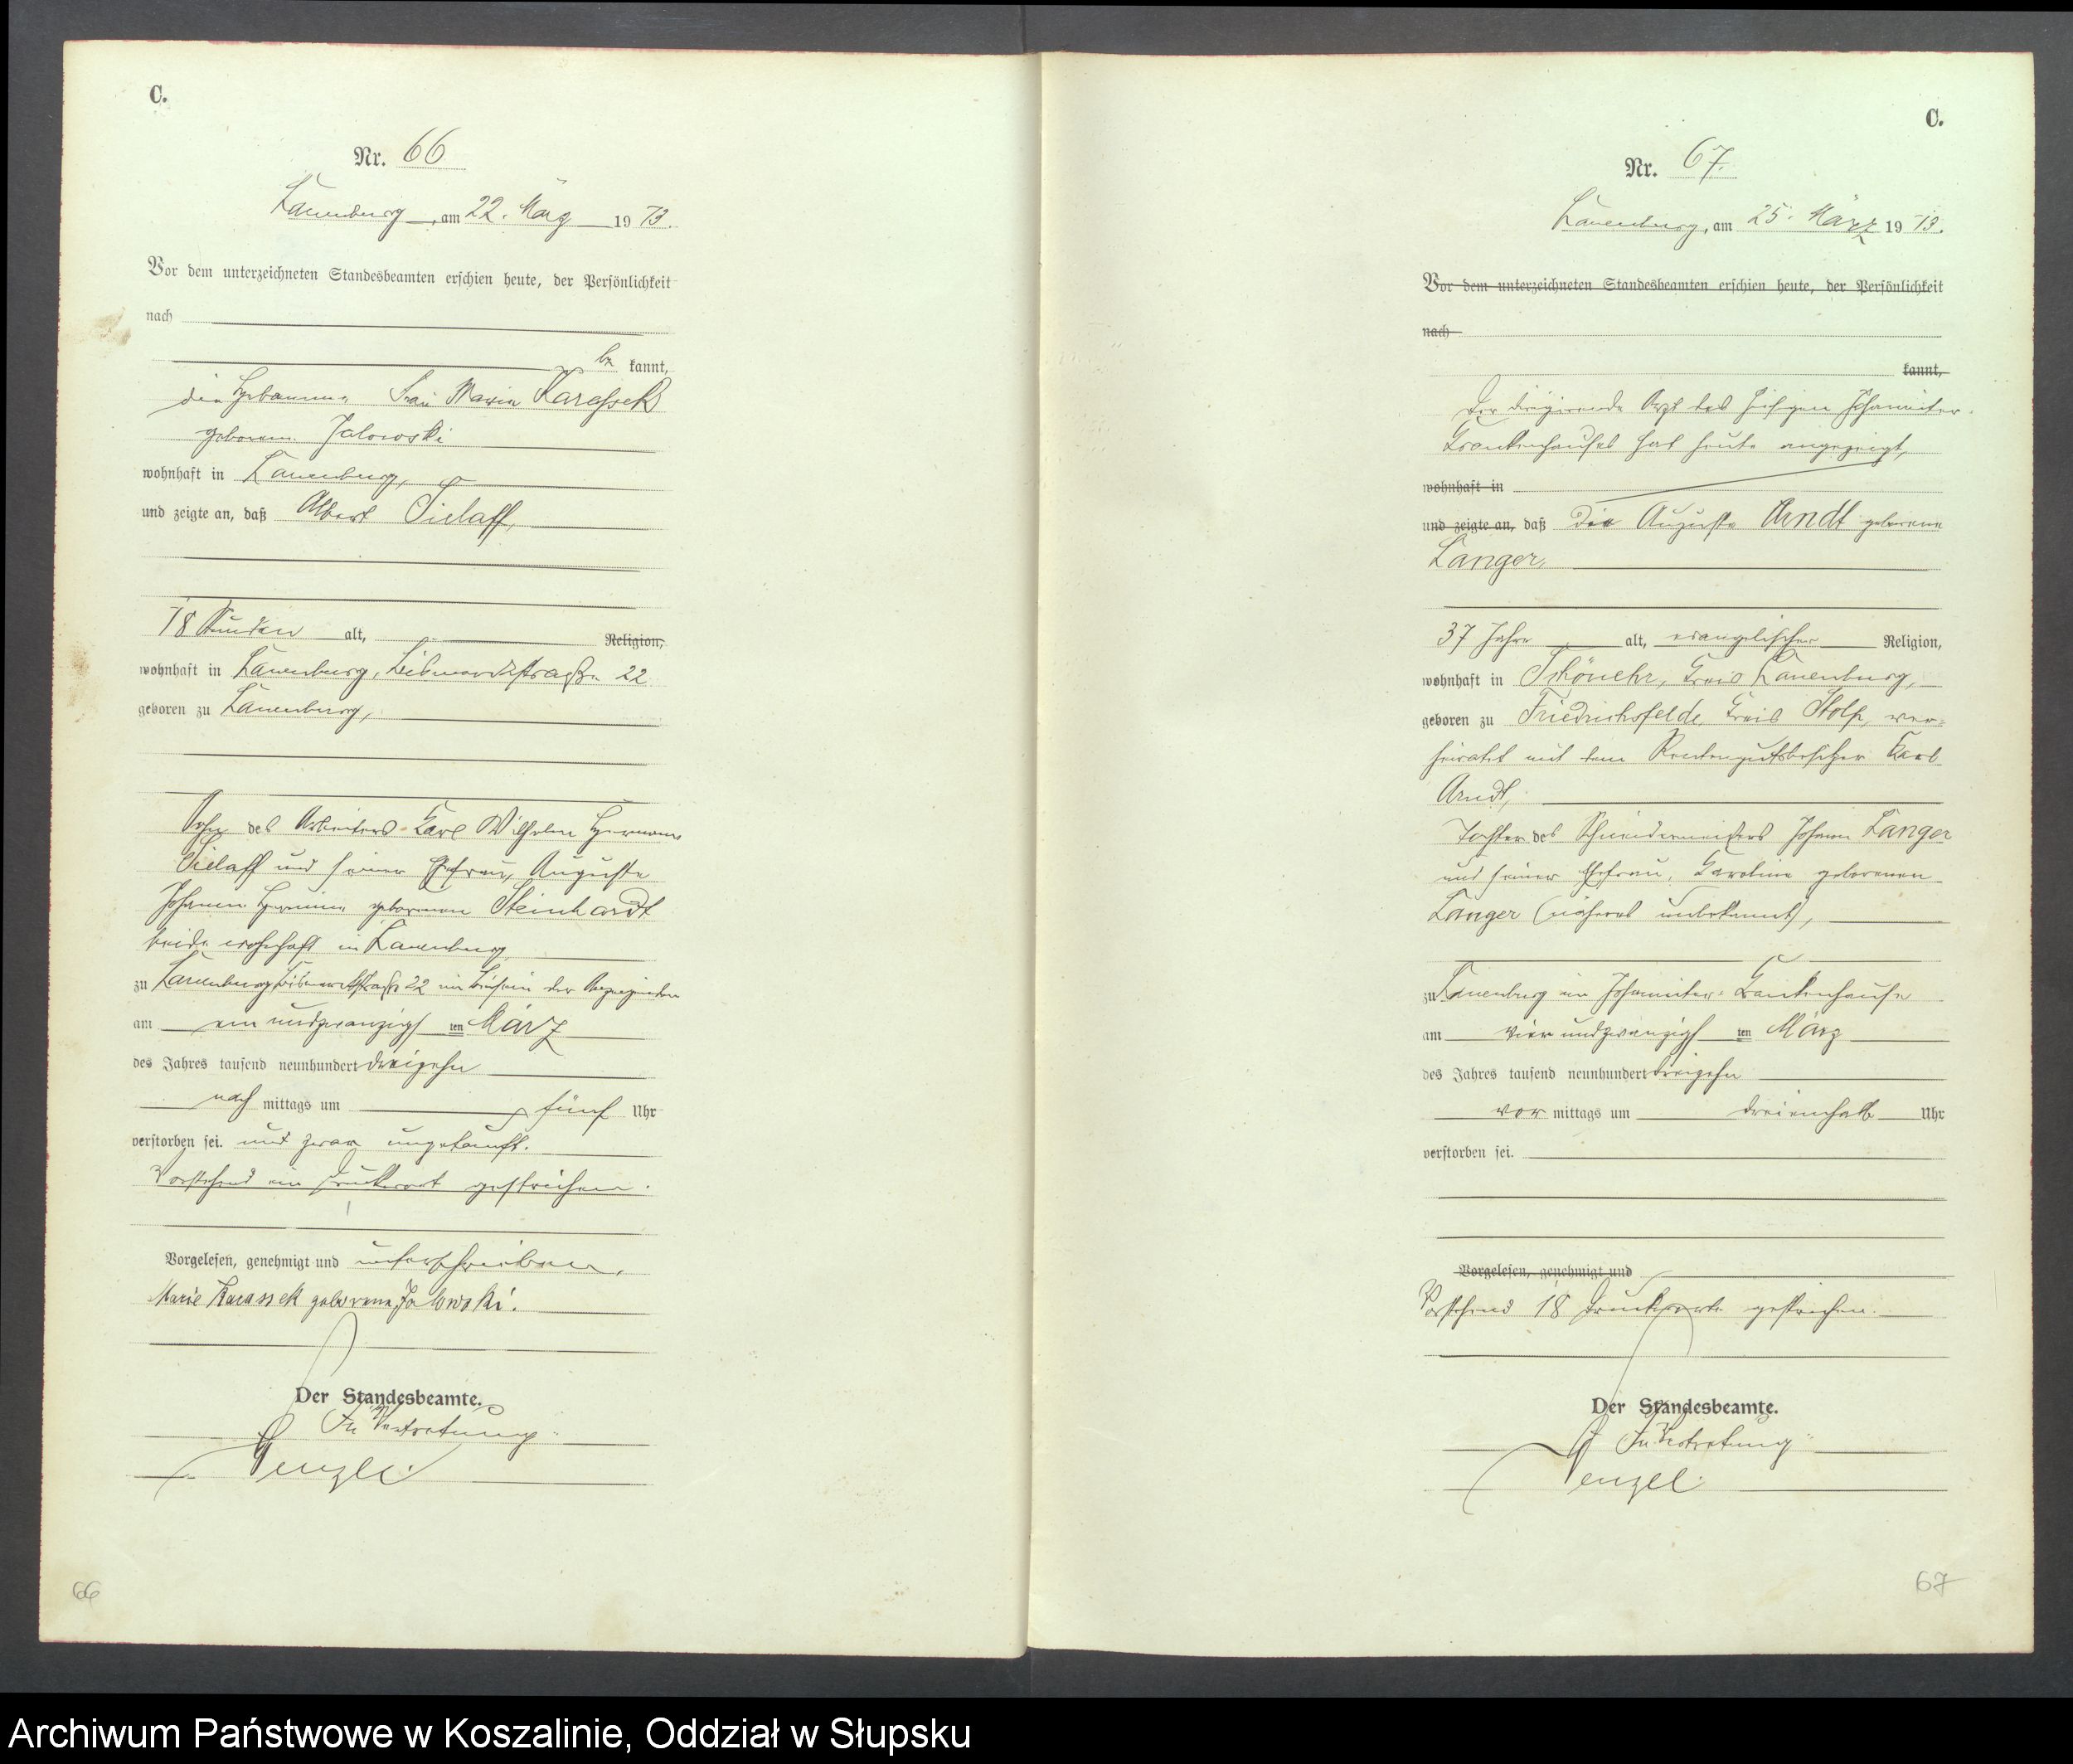 C.
Nr. 66
Lauenburg, am 22. März 1913.
Vor dem unterzeichneten Standesbeamten erschien heute, der Persönlichkeit
nach
be kannt,
die Hebamme Frau Marie Karassek
geborene Jalowski
wohnhaft in Lauenburg,
und zeigte an, daß Albert Tielaff,
18 Stunden alt, Religion,
wohnhaft in Lauenburg, Bismarckstraße 22
geboren zu Lauenburg,
Sohn des Arbeiters Karl Wilhelm Hermann
Tielaff und seiner Ehefrau, Auguste
Johanne Hermine geborenen Steinhardt
beide wohnhaft in Lauenburg
zu Lauenburg Bismarckstraße 22 im Beisein der Anzeigenden
am ein und zwanzigs ten März
des Jahres tausend neunhundert dreizehn
nach mittags um fünf Uhr
verstorben sei. und zwar ungetauft.
Vorstehend ein Druckwort gestrichen.
Vorgelesen, genehmigt und unterschrieben.
Marie Karassek geborene Jalowski.
Der Standesbeamte.
In Vertretung
Penzel
66
C.
Nr. 67.
Lauenburg, am 25. März 1913.
Vor dem unterzeichneten Standesbeamten erschien heute, der Persönlichkeit
nach
kannt,
Der dirigierende Arzt des hiesigen Johanniter-
Krankenhauses hat heute angezeigt,
wohnhaft in
und zeigte an, daß die Auguste Arndt geborene
Langer,
37 Jahre alt, evangelischer Religion,
wohnhaft in Schönehr, Kreis Lauenburg,
geboren zu Friedrichsfelde Kreis Stolp, ver-
heiratet mit dem Rentengutsbesitzer Karl
Arndt,
Tochter des Schneidermeisters Johann Langer
und seiner Ehefrau, Karoline geborenen
Langer (näheres unbekannt),
zu Lauenburg im Johanniter-Krankenhause
am vier und zwanzigs ten März
des Jahres tausend neunhundert dreizehn
vor mittags um dreieinhalb Uhr
verstorben sei.
Vorgelesen, genehmigt und
Vorstehend 18 Druckworte gestrichen.
Der Standesbeamte.
In Vertretung
Penzel
67
Archiwum Państwowe w Koszalinie, Oddział w Słupsku